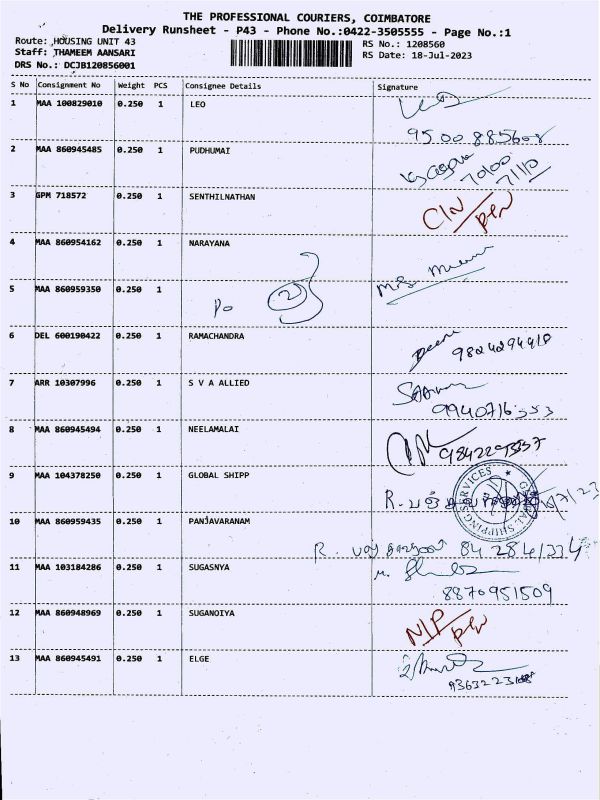 THE PROFESSIONAL COURIERS, COIMBATORE
Delivery Runsheet - P43 - Phone No.:0422-3505555 - Page No.:1
Route: HOUSING UNIT 43
RS No.: 1208560
Staff: THAMEEM AANSARI
RS Date: 18-Jul-2023
DRS No.: DCJB120856001
S No Consignment No Weight PCS Consignee Details Signature
1 MAA 100829010 0.250 1 LEO
9500885608
2 MAA 860945485 0.250 1 PUDHUMAI
3 GPM 718572 0.250 1 SENTHILNATHAN
4 MAA 860954162 0.250 1 NARAYANA
5 MAA 860959350 0.250 1
Po 2
6 DEL 600190422 0.250 1 RAMACHANDRA
9824294410
7 ARR 10307996 0.250 1 S V A ALLIED
9940716553
8 MAA 860945494 0.250 1 NEELAMALAI
9 MAA 104378250 0.250 1 GLOBAL SHIPP
10 MAA 860959435 0.250 1 PANJAVARANAM
11 MAA 103184286 0.250 1 SUGASNYA
8870951509
12 MAA 860948969 0.250 1 SUGANOIYA
13 MAA 860945491 0.250 1 ELGE